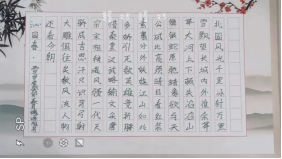 北国风光千里冰封万里
雪飘望长城内外惟余莽
莽大河上下顿失滔滔山
舞银蛇原驰蜡象欲与天
公试比高须晴日看红装
素裹分外妖娆江山如此
多娇引无数英雄竞折腰
惜秦皇汉武略输文采唐
宗宋祖稍逊风骚一代天
骄成吉思汗只识弯弓射
大雕俱往矣数风流人物
还看今朝
沁园春
SP